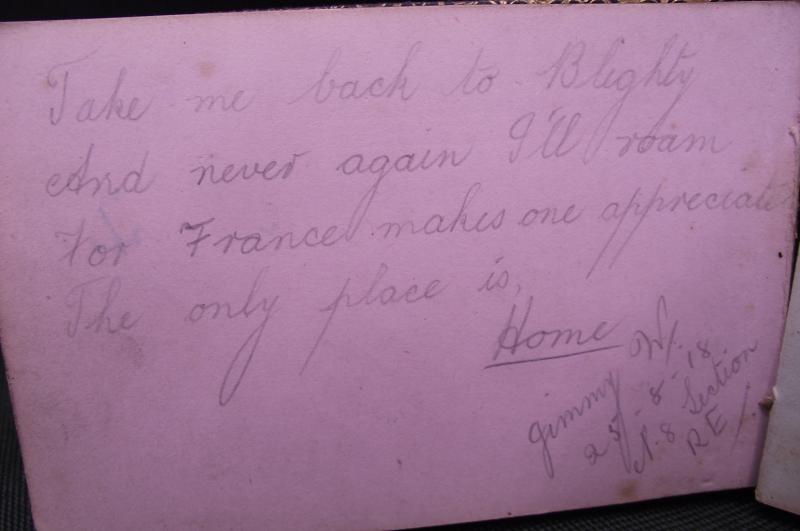 Take me back to Blighty
And never again I'll roam
For France makes one appreciate
The only place is,
Home
Jimmy W/.
25-8-18
N.8 Section
RE/.